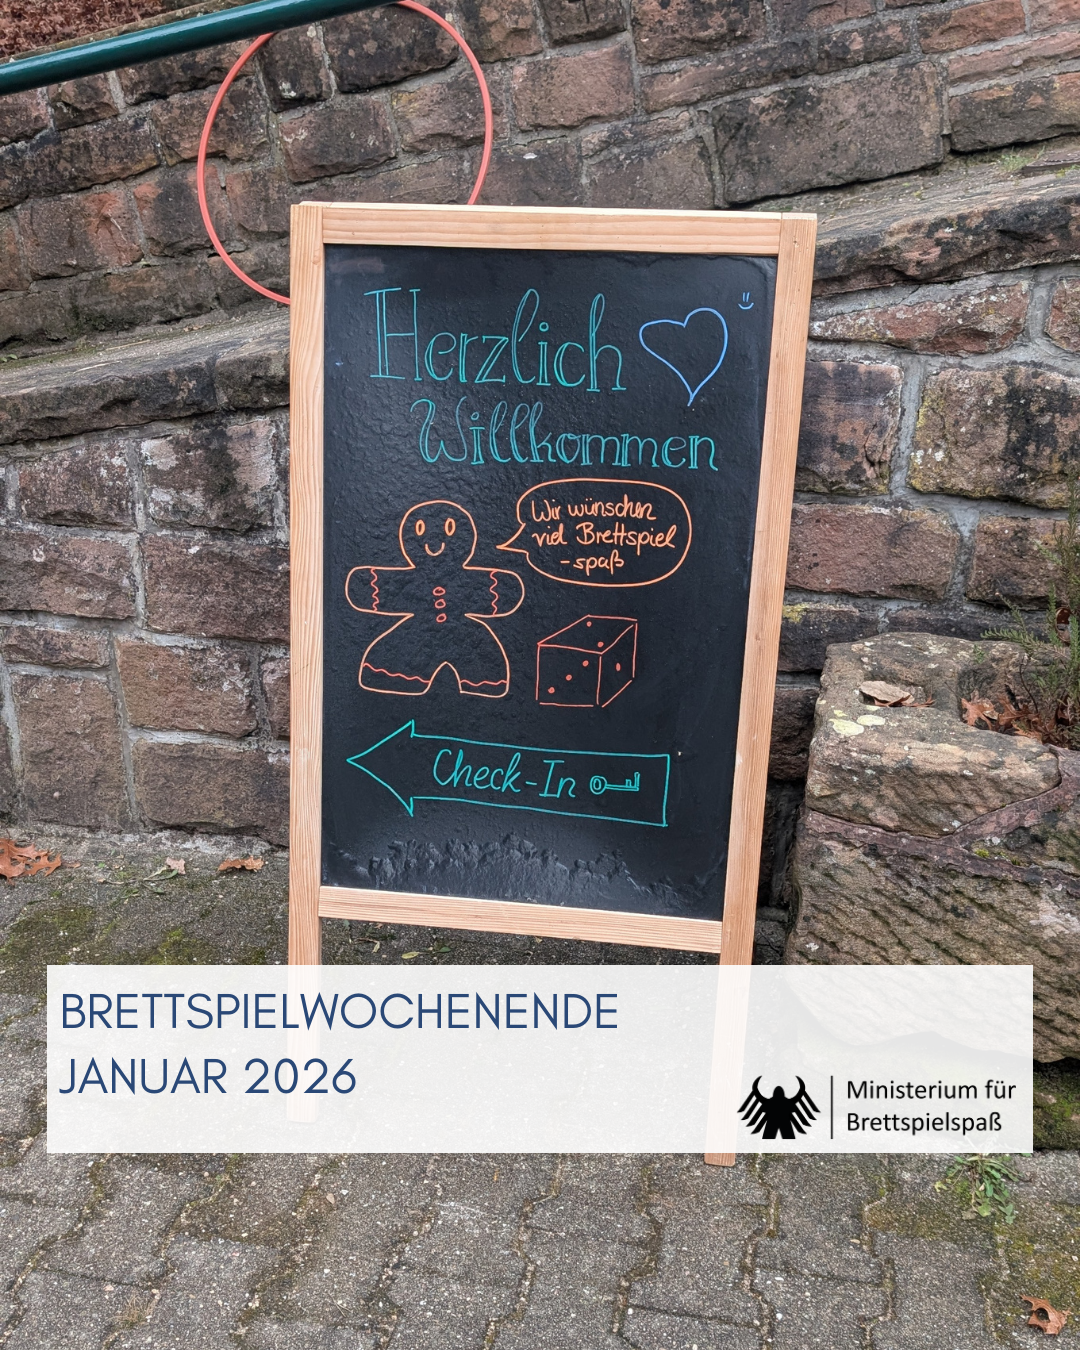 Herzlich
Willkommen
Wir wünschen
viel Brettspiel
-spaß
Check-In
BRETTSPIELWOCHENENDE
JANUAR 2026
Ministerium für
Brettspielspaß